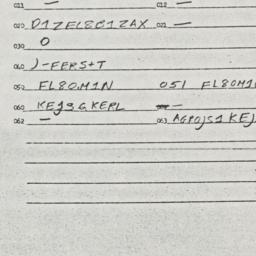 011 — 012 —
020 D1ZEL8C1ZAX 021 —
030 O
060 )-FERS+T
050 FL80M1N 051 FL80M1
060 KEJSGKERL —
062 — 063 AGPOJS1KEJ